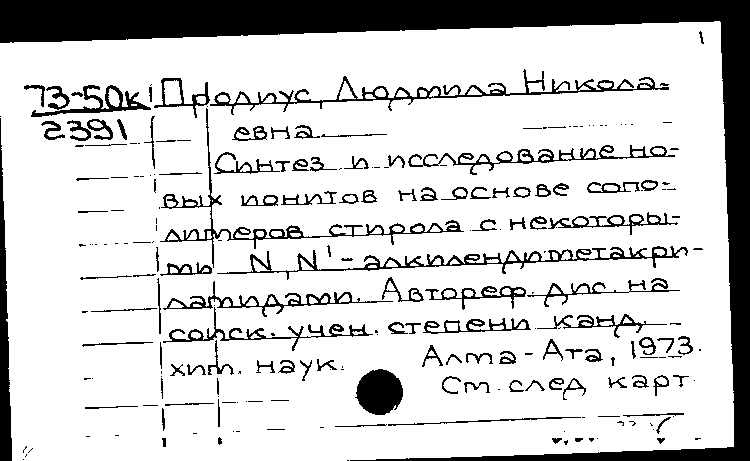 1
73-50к Продиус, Людмила Никола-
2391 евна.
Синтез и исследование но-
вых ионитов на основе сопо-
лимеров стирола с некоторы-
ми N,N'-алкилендиметакри-
ламидами. Автореф. дис. на
соиск. учен. степени канд.
хим. наук. Алма-Ата, 1973.
См. след карт